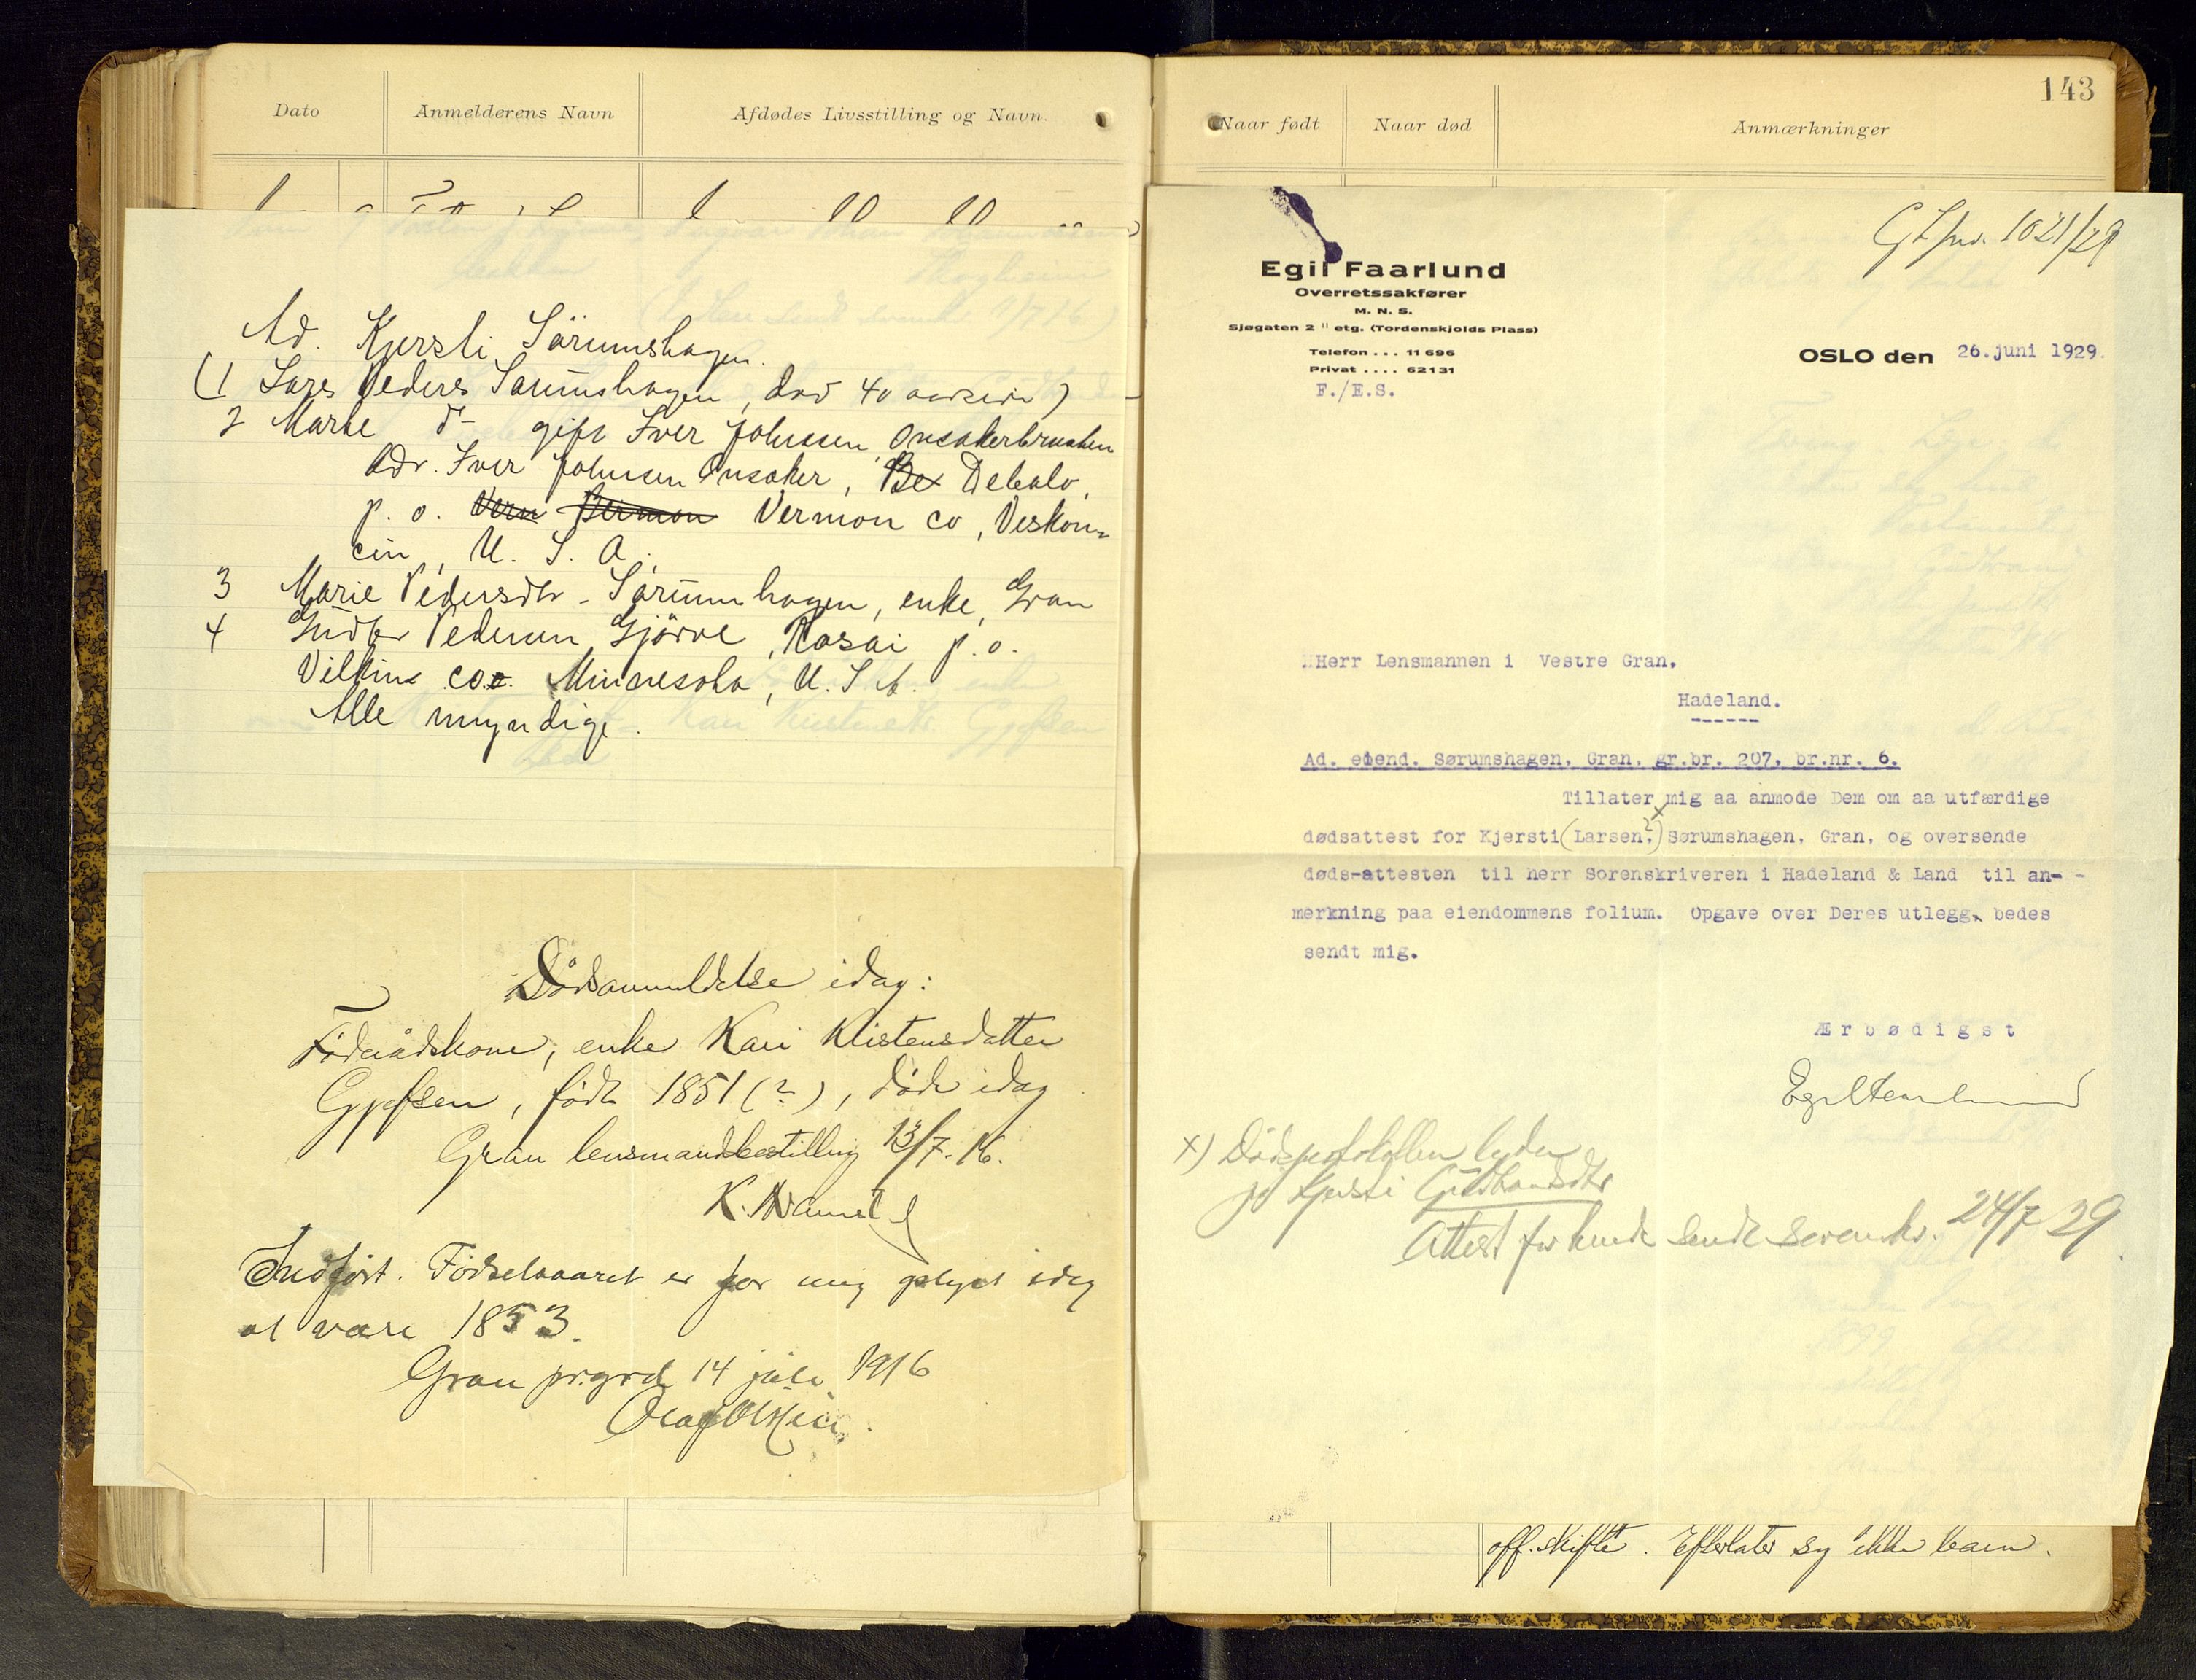 Dato
Anmelderens Navn
Afdødes Livsstilling og Navn.
Ad. Kjersti Sörumshagen.
(1 Lars Peders Sörumshagen, död 40 aar siden)
2 Marte do gift Iver Johnsen, Onsakerbraaten
Adr. Iver Johnsen Onsaker, Be Debalo,
p. o. Vern Bermon Vermon co, Viskon=
cin, U. S. A.
3 Marie Pedersdtr Sörumhagen, enke, Gran
4 Gudbr Pedersen Gjörve, Rosai p. o.
Vilkins co. Minnesota, U. S. A.
Alle myndige.
Dödsanmeldelse idag:
Föderådskone, enke Kari Kristensdatter
Gjefsen, födt 1851 (?), död idag
Gran lensmandbestilling 13/7-16.
K.
Indfört. Födselsaaret er for mig oplyst idag
at være 1853.
Gran prgrd 14 juli 1916
Naar født
Naar død
Anmærkninger
143
1021/29
Egil Faarlund
Overretssakfører
M. N. S.
Sjøgaten 2 II etg. (Tordenskjolds Plass)
Telefon . . . 11 696
Privat . . . . 62131
F./E.S.
OSLO den 26.juni 1929.
Herr Lensmannen i Vestre Gran,
Hadeland.
------
Ad. eiend. Sørumshagen, Gran, gr.br. 207, br.nr. 6.
Tillater mig aa anmode Dem om aa utfærdige
dødsattest for Kjersti (Larsen,?) x Sørumshagen, Gran, og oversende
døds-attesten til herr Sorenskriveren i Hadeland & Land til an- -
merkning paa eiendommens folium. Opgave over Deres utlegg bedes
sendt mig.
Ærbødigst
Egil Faarlund
x) Dödsprotokollen lyder
på Kjersti Gudbrandsdtr
Attest for hende sendt sorenskr. 24/7 29.
off. skifte. Efterlater sig ikke barn.